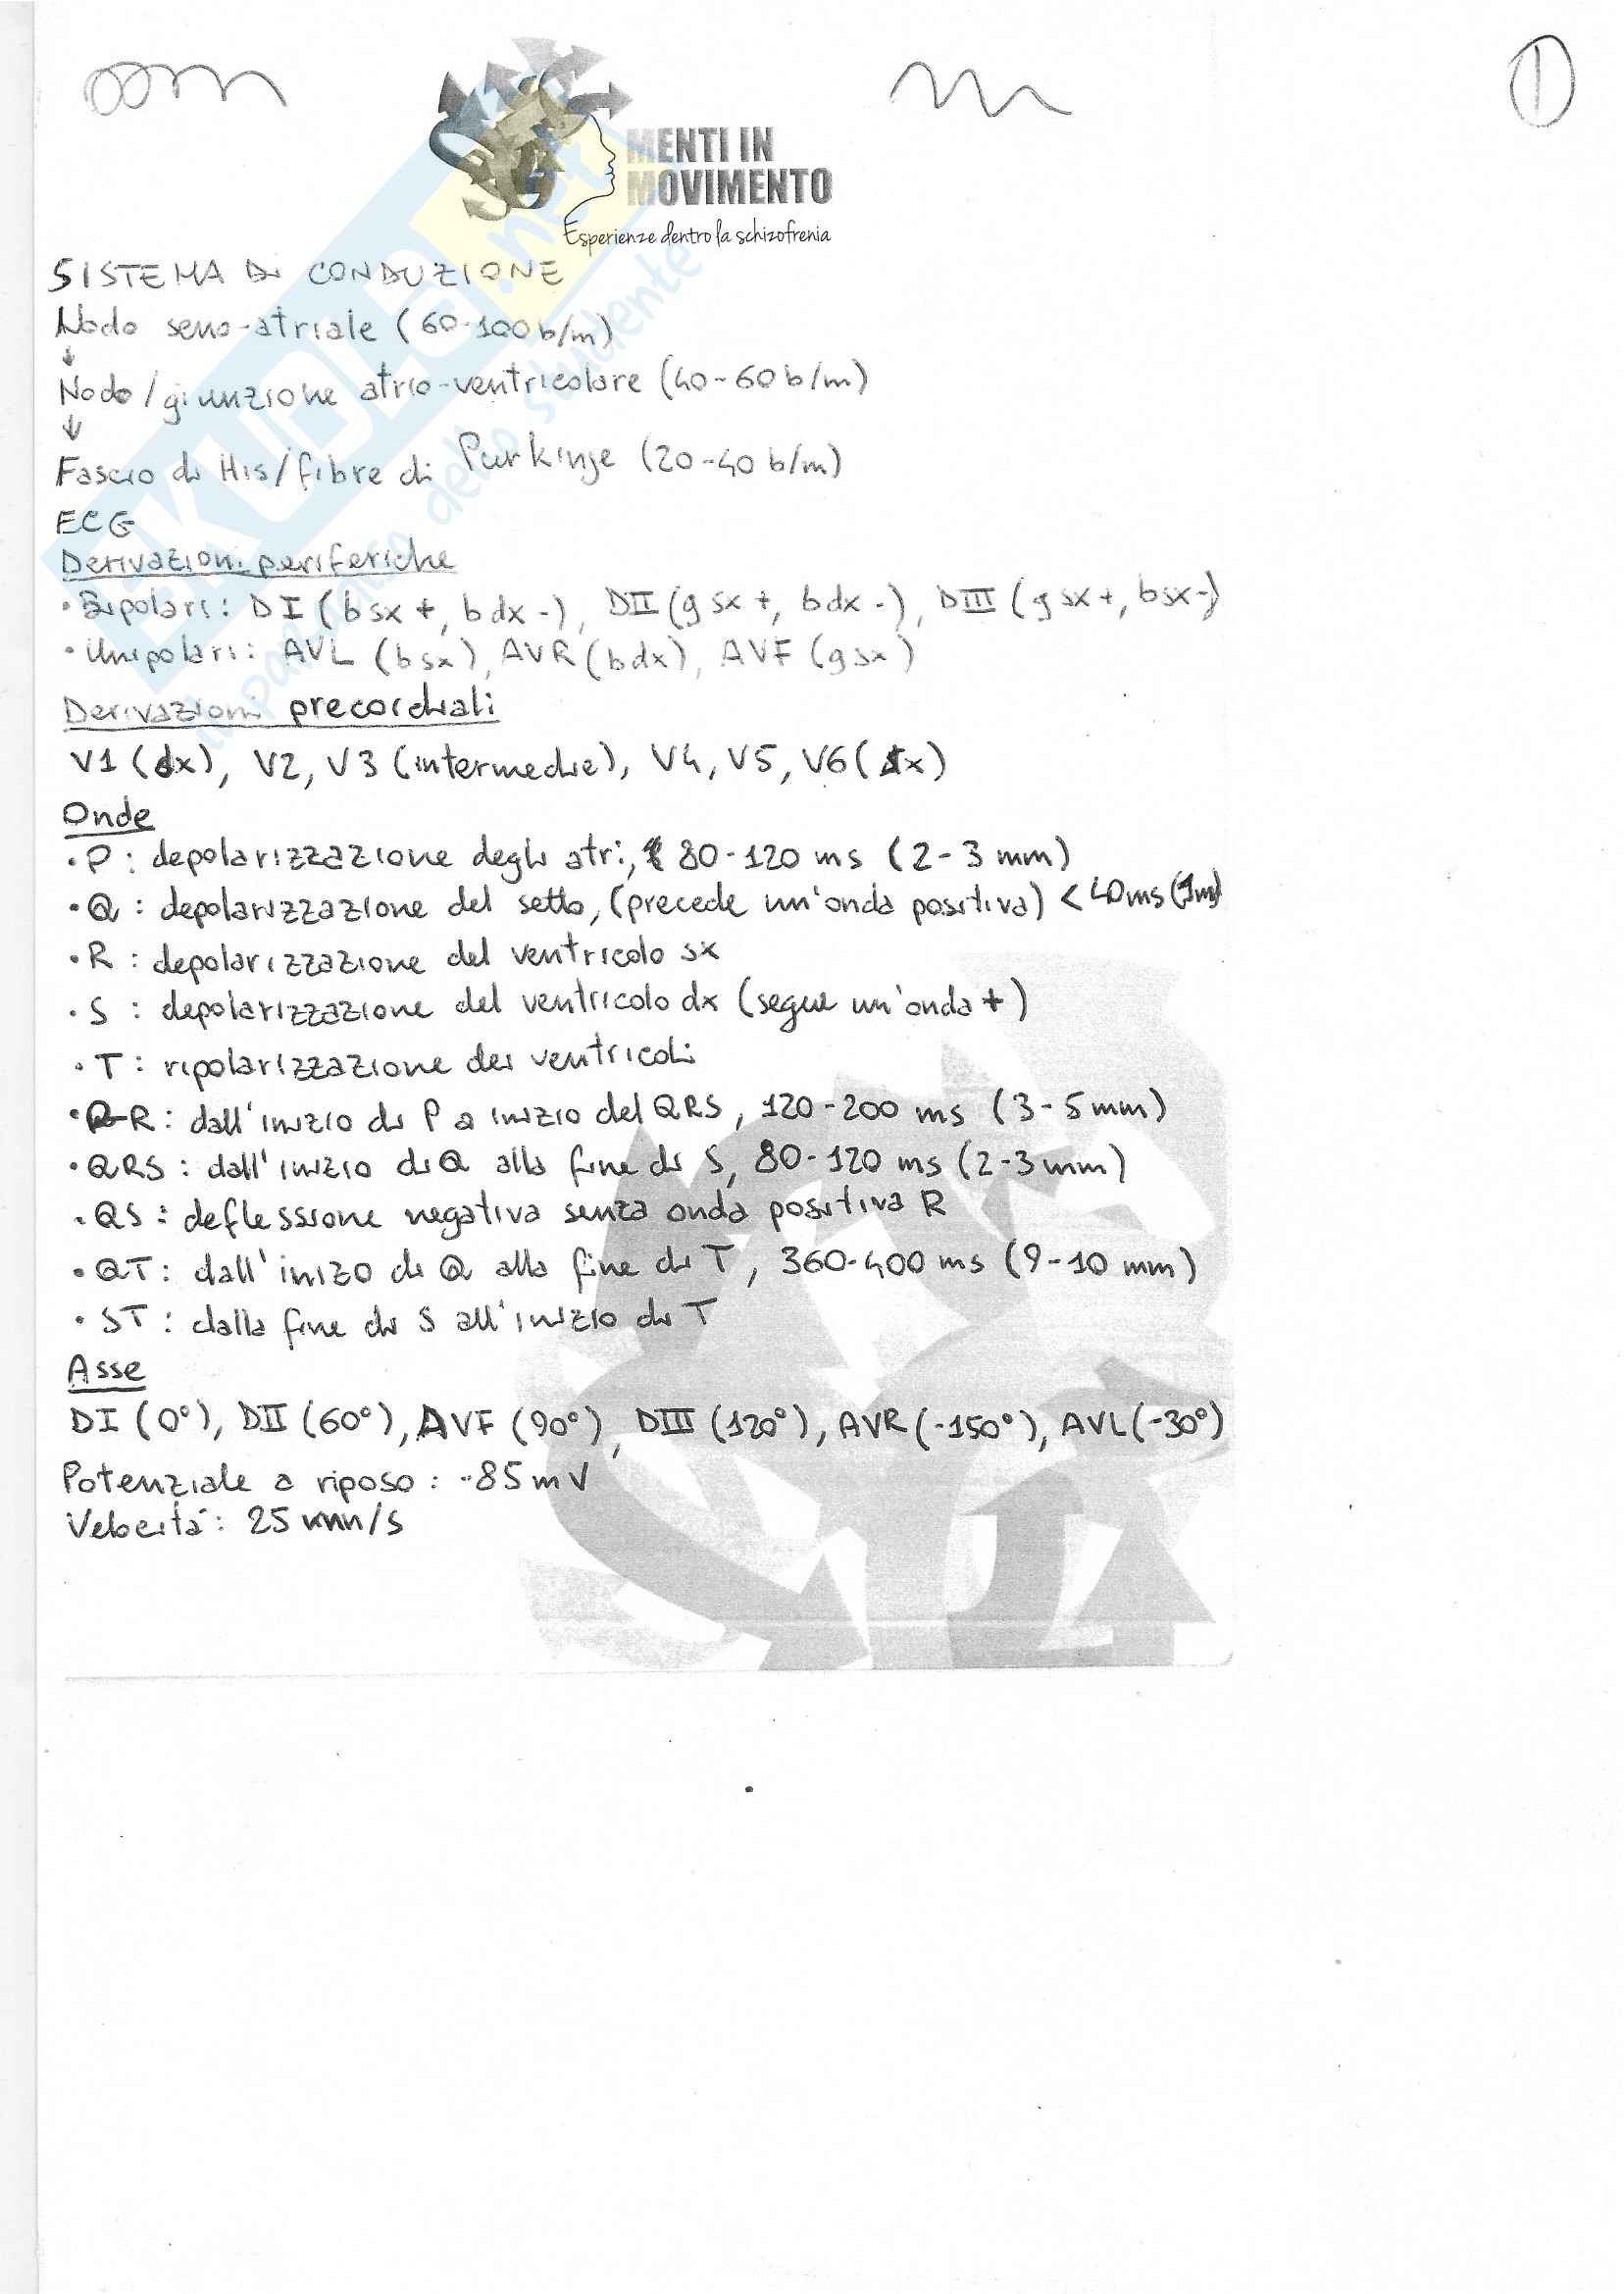 1
MENTI IN
MOVIMENTO
Esperienze dentro la schizofrenia
SISTEMA DI CONDUZIONE
Nodo seno-atriale (60-100 b/m)
↓
Nodo/giunzione atrio-ventricolare (40-60 b/m)
↓
Fascio di His/fibre di Purkinje (20-40 b/m)
ECG
Derivazioni periferiche
• Bipolari: DI (b sx +, b dx -), DII (g sx +, b dx -), DIII (g sx +, b sx -)
• Unipolari: AVL (b sx), AVR (b dx), AVF (g sx)
Derivazioni precordiali
V1 (dx), V2, V3 (intermedie), V4, V5, V6 (sx)
Onde
• P: depolarizzazione degli atri, 80-120 ms (2-3 mm)
• Q: depolarizzazione del setto, (precede un'onda positiva) < 40 ms (1m)
• R: depolarizzazione del ventricolo sx
• S: depolarizzazione del ventricolo dx (segue un'onda +)
• T: ripolarizzazione dei ventricoli
• P-R: dall'inizio di P a inizio del QRS, 120-200 ms (3-5 mm)
• QRS: dall'inizio di Q alla fine di S, 80-120 ms (2-3 mm)
• QS: deflessione negativa senza onda positiva R
• QT: dall'inizo di Q alla fine di T, 360-400 ms (9-10 mm)
• ST: dalla fine di S all'inizio di T
Asse
DI (0°), DII (60°), AVF (90°), DIII (120°), AVR (-150°), AVL (-30°)
Potenziale a riposo: -85 mV
Velocità: 25 mm/s